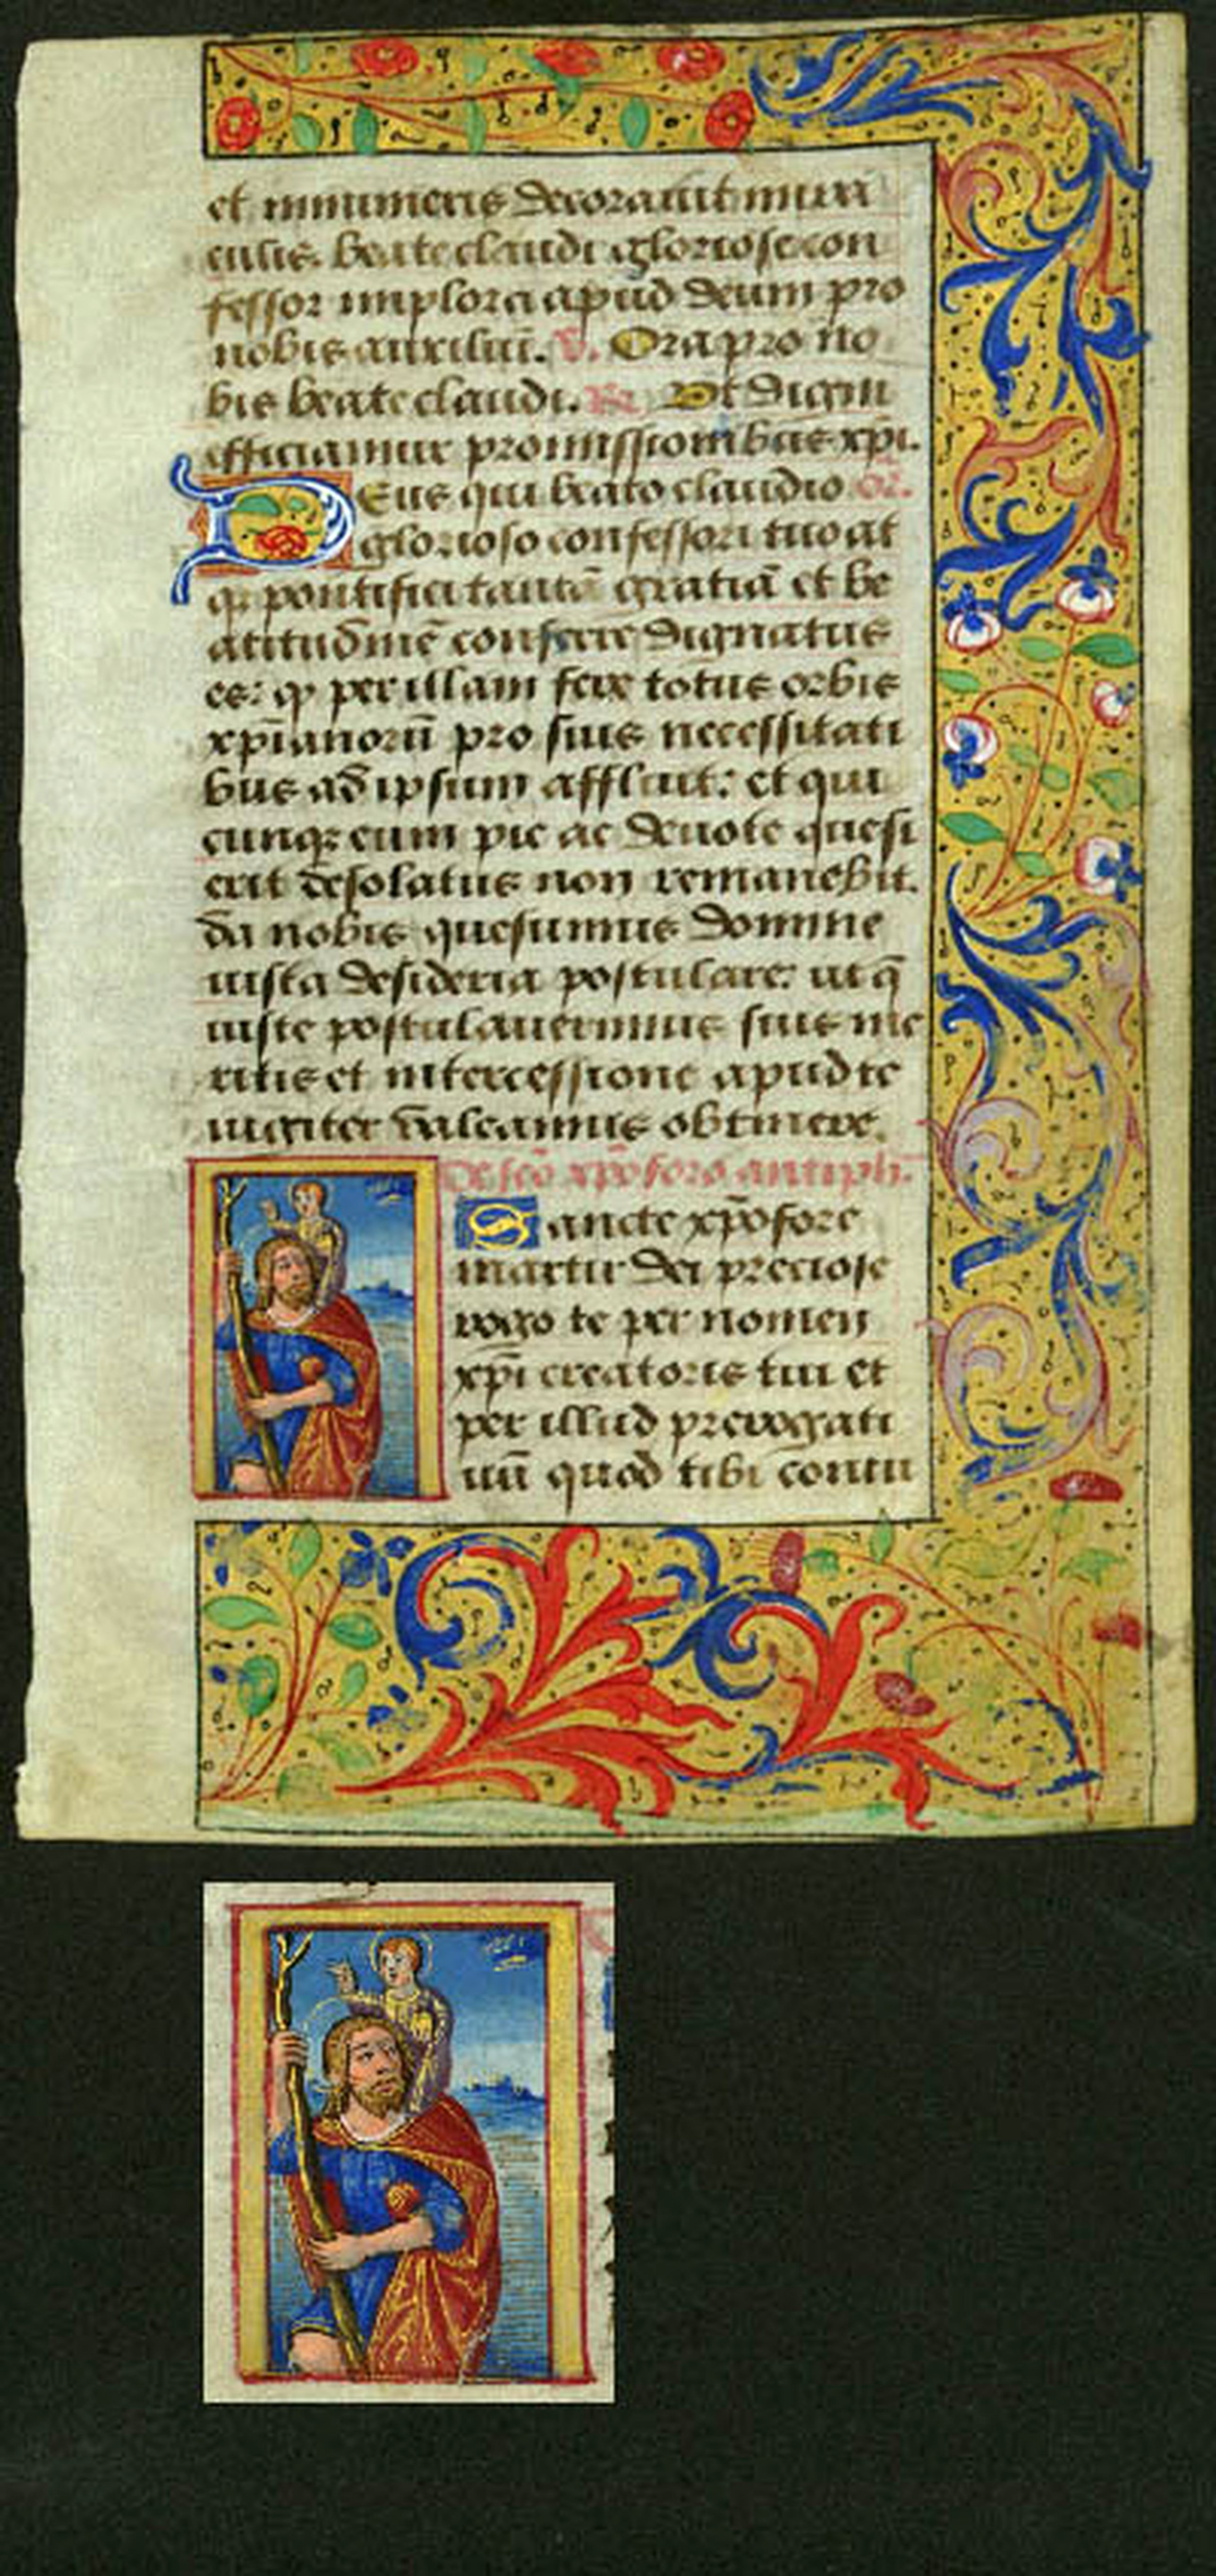 et innumeris decorauit mira
culis beate claudi gloriose con
fessor implora apud deum pro
nobis auxiliū. V. Ora pro no
bis beate claudi. R. Vt digni
efficiamur promissionibus xp̄i.
Deus qui beato claudio or.
glorioso confessori tuo at
qꝫ pontifici tantā gratiā et be
atitudinē conferre dignatus
es: ꝙ per illam fere totus orbis
xp̄ianorū pro suis necessitati
bus ad ipsum affluit: et qui
cunqꝫ eum pie ac deuote quesi
erit desolatus non remanebit.
da nobis quesumus domine
iusta desideria postulare: ut q̄
iuste postulauerimus suis me
ritis et intercessione apud te
iugiter valeamus obtinere.
De scō xp̄oforo antiph.
Sancte xp̄ofore
martir dei preciose
rogo te per nomen
xp̄i creatoris tui et
per illud prerogati
uū quod tibi contu